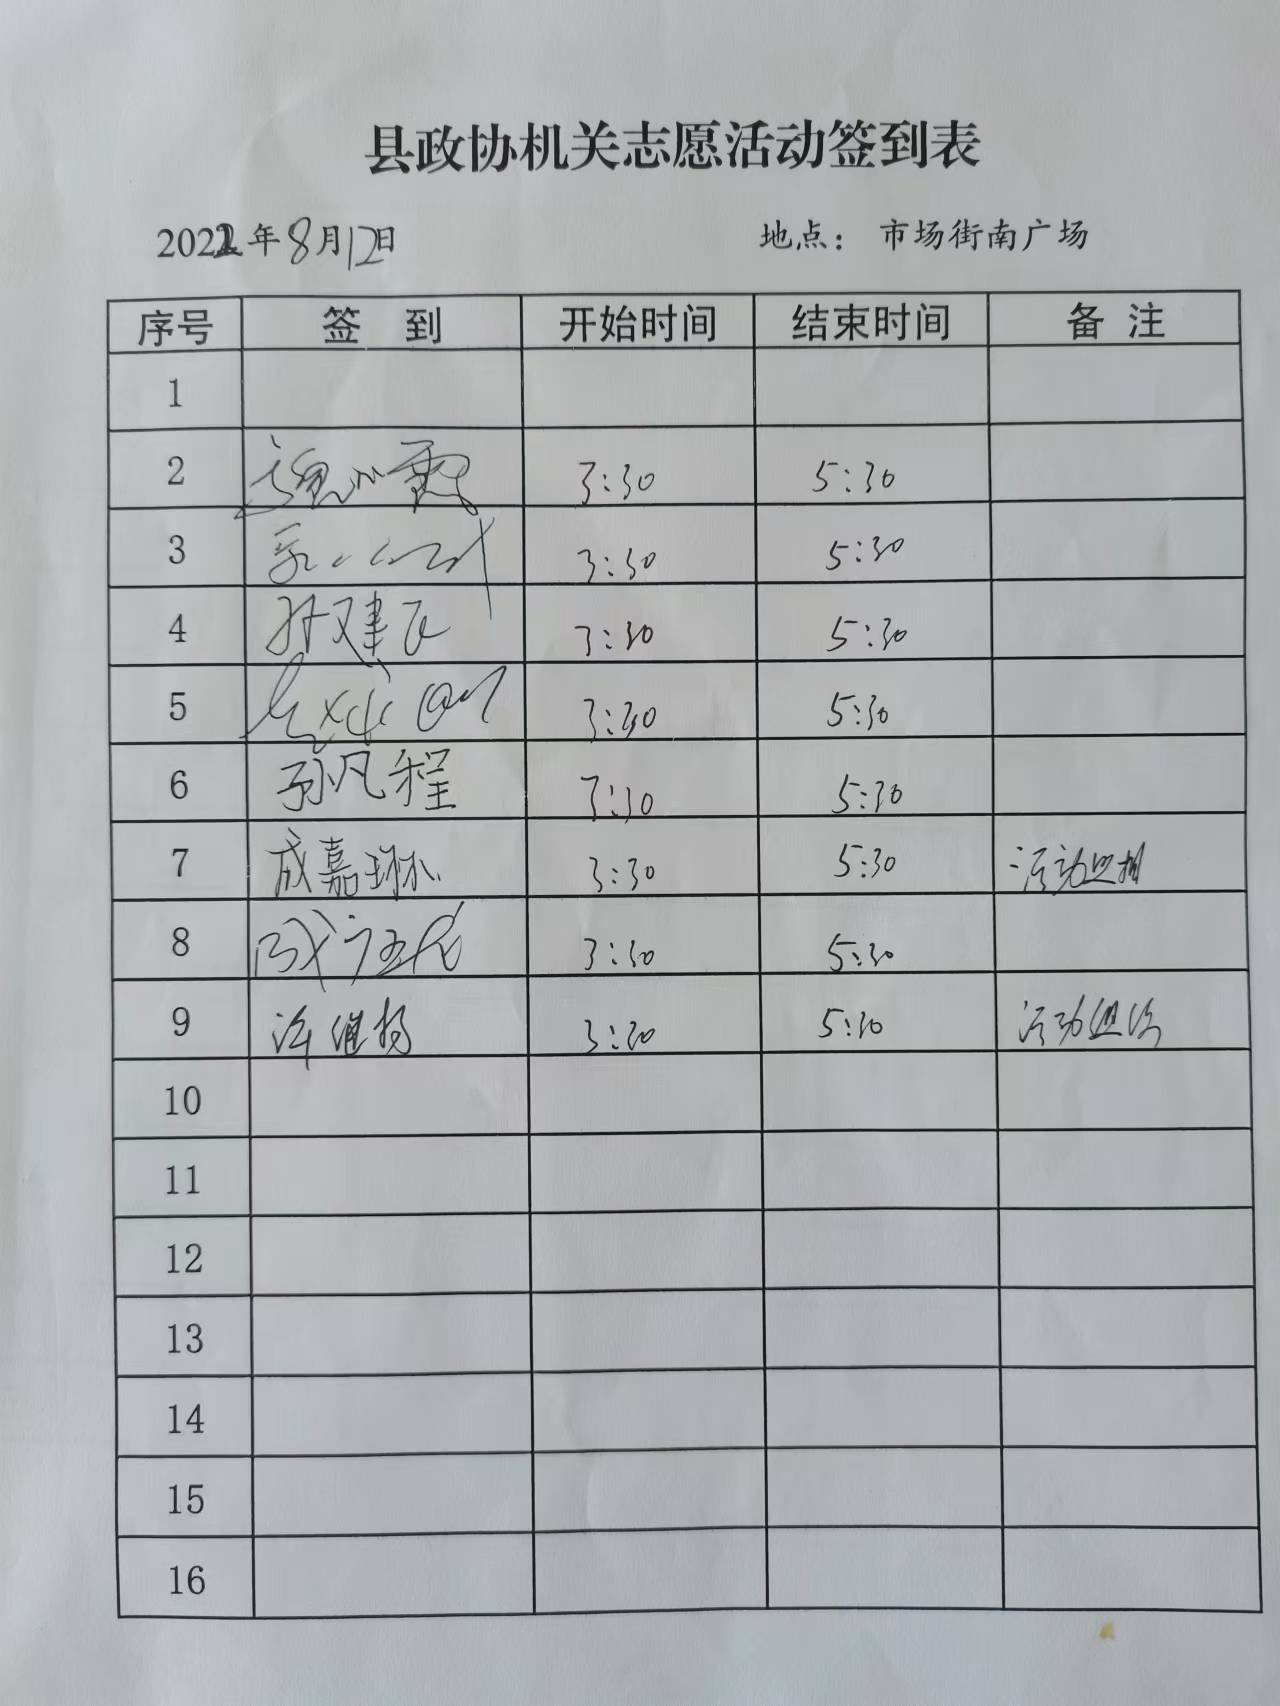 县政协机关志愿活动签到表
2022年8月12日 地点： 市场街南广场
序号 签 到 开始时间 结束时间 备 注
1
2 3:30 5:30
3 3:30 5:30
4 孙建飞 3:30 5:30
5 3:30 5:30
6 孙凡程 3:30 5:30
7 成嘉琳 3:30 5:30 活动照相
8 3:30 5:30
9 许继扬 3:30 5:30 活动组织
10
11
12
13
14
15
16